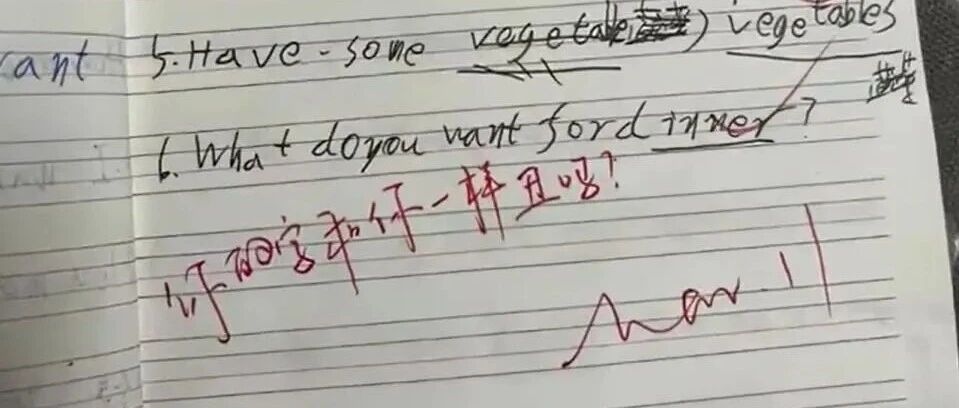 ant 5. Have some vegetable vegetables
6. What do you want ford inner?
你的字和你一样丑吗?
Nov. 11